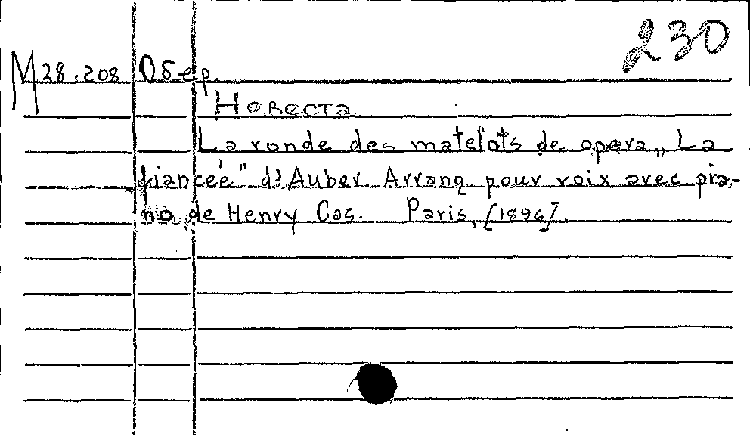 230
M 28.208 Обер.
Новеста
La ronde des matelots de opera „La
fiancée" d'Auber. Arrang. pour voix avec pia-
no de Henry Cas. Paris, [1896].